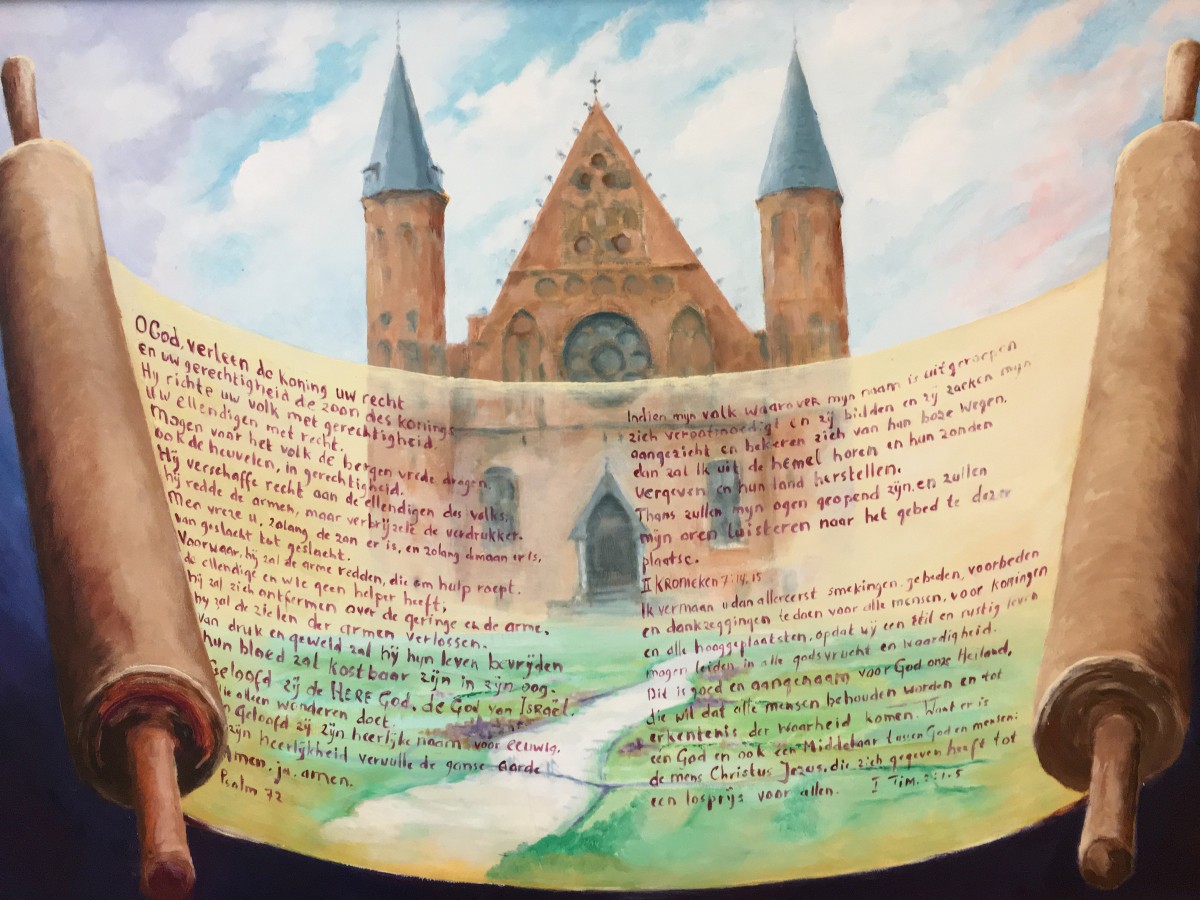 O God, verleen de koning uw recht
en uw gerechtigheid de zoon des konings
Hij richte uw volk met gerechtigheid.
uw ellendigen met recht.
Mogen voor het volk de bergen vrede dragen
ook de heuvelen, in gerechtigheid.
Hij verschaffe recht aan de ellendigen des volks,
hij redde de armen, maar verbrijzele de verdrukker.
Men vreze u, zolang de zon er is, en zolang de maan er is,
van geslacht tot geslacht.
Voorwaar, hij zal de arme redden, die om hulp roept.
de ellendige en wie geen helper heeft;
hij zal zich ontfermen over de geringe en de arme,
hij zal de zielen der armen verlossen.
van druk en geweld zal hij hun leven bevrijden
hun bloed zal kostbaar zijn in zijn oog.
Geloofd zij de HERE God, de God van Israël,
die alleen wonderen doet.
Geloofd zij zijn heerlijke naam voor eeuwig,
zijn heerlijkheid vervulle de ganse aarde
Amen, ja, amen.
Psalm 72
Indien mijn volk waarover mijn naam is uitgeroepen
zich verootmoedigt en zij bidden en zij zoeken mijn
aangezicht en bekeren zich van hun boze wegen,
dan zal Ik uit de hemel horen en hun zonden
vergeven en hun land herstellen.
Thans zullen mijn ogen geopend zijn, en zullen
mijn oren luisteren naar het gebed te dezer
plaatse.
II KRONIEKEN 7:14.15
Ik vermaan u dan allereerst smekingen, gebeden, voorbeden
en dankzeggingen te doen voor alle mensen, voor koningen
en alle hooggeplaatsten, opdat wij een stil en rustig leven
mogen leiden in alle godsvrucht en waardigheid.
Dit is goed en aangenaam voor God onze Heiland,
die wil dat alle mensen behouden worden en tot
erkentenis der waarheid komen. Want er is
een God en ook een Middelaar tussen God en mensen:
de mens Christus Jezus, die zich gegeven heeft tot
een losprijs voor allen. I Tim. 2:1-5